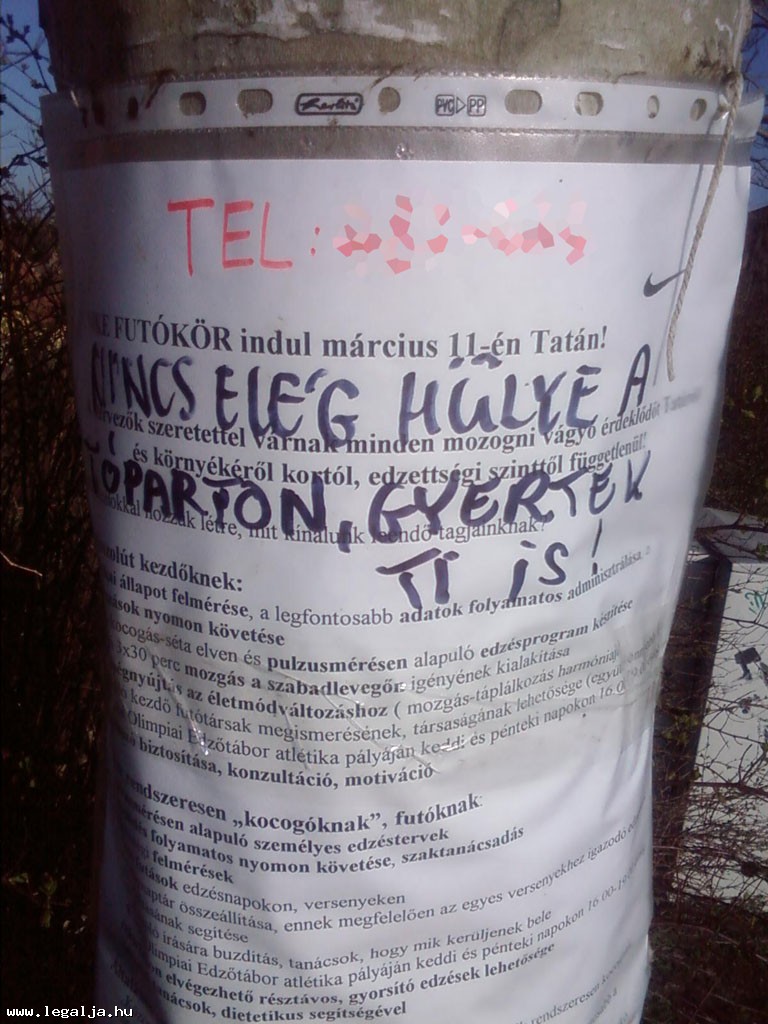 Herlitz
PVC PP
TEL:
FUTÓKÖR indul március 11-én Tatán!
NINCS ELÉG HÜLYE A
szeretettel várnak minden mozogni vágyó érdeklődőt
és környékéről kortól, edzettségi szinttől függetlenül!
TÓPARTON, GYERTEK
hozzuk létre, mit kínálunk leendő tagjainknak?
TI IS!
kezdőknek:
állapot felmérése, a legfontosabb adatok folyamatos adminisztrálása,
nyomon követése
kocogás-séta elven és pulzusmérésen alapuló edzésprogram készítése
3x30 perc mozgás a szabadlevegőn igényének kialakítása
az életmódváltozáshoz ( mozgás-táplálkozás
kezdő futótársak megismerésének, társaságának lehetősége
Olimpiai Edzőtábor atlétika pályáján keddi és pénteki napokon 16.0
biztosítása, konzultáció, motiváció
rendszeresen „kocogóknak”, futóknak:
alapuló személyes edzéstervek
folyamatos nyomon követése, szaktanácsadás
felmérések
edzésnapokon, versenyeken
összeállítása, ennek megfelelően az egyes versenyekhez igazodó
segítése
írására buzdítás, tanácsok, hogy mik kerüljenek bele
Olimpiai Edzőtábor atlétika pályáján keddi és pénteki napokon 16.00-19
elvégezhető résztávos, gyorsító edzések lehetősége
tanácsok, dietetikus segítségével
rendszeresen
www.legalja.hu